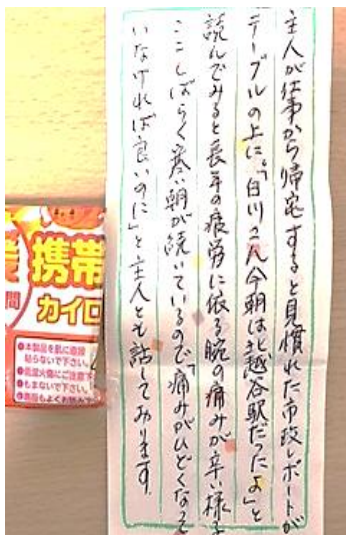 主人が仕事から帰宅すると見慣れた市政レポートが
テーブルの上に。「白川さん今朝は北越谷駅だったよ」と
読んでみると長年の疲労に依る腕の痛みが辛い様子
ここしばらく寒い朝が続いているので「痛みがひどくなって
いなければ良いのに」と主人とも話しております。
携帯
カイロ
間
●本製品を肌に直接
貼らないで下さい。
●低温火傷にご注意下
●もまないで下さい。